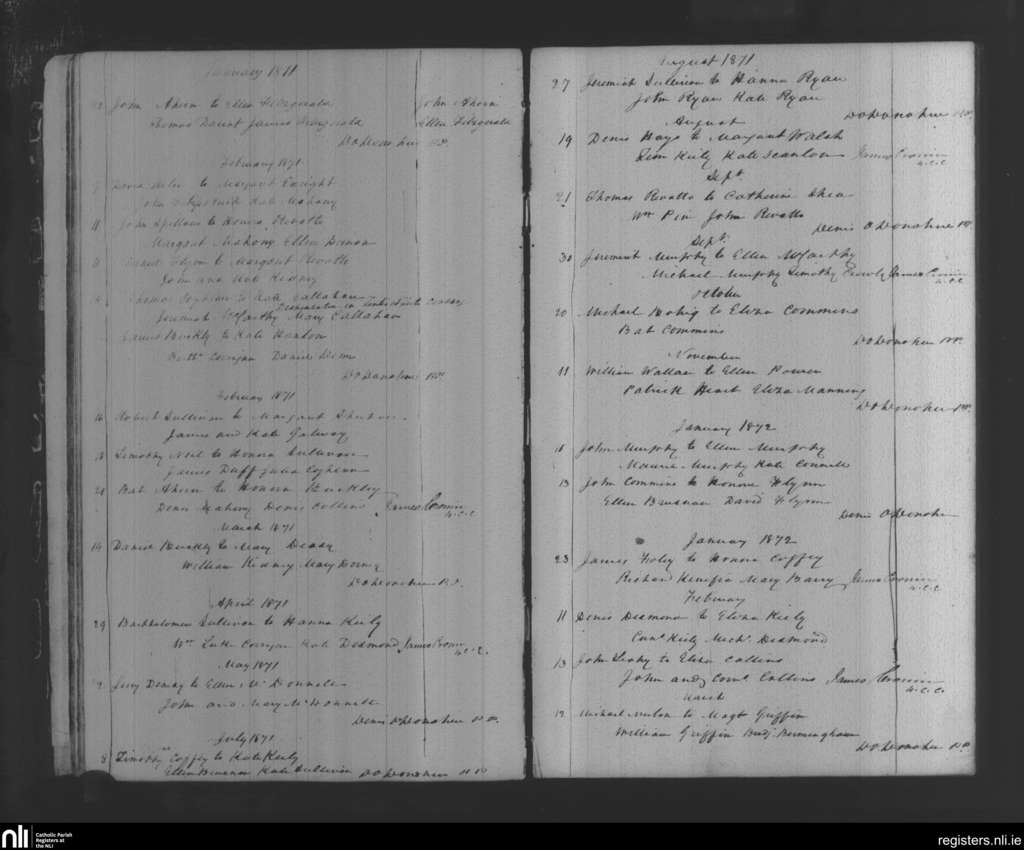 January 1871
John Ahern to Ellen Fitzgerald John Ahern
Thomas Daunt James Fitzgerald Ellen Fitzgerald
D O Donohue PP.
February 1871
to Margaret Enright
John Fitzpatrick Kate Mahony
11 John Spillane to Honora Rivatto
Margaret Mahony Ellen
Daniel Flynn to Margaret Rivatto
John and Kate Kidney
Thomas to Kate Callahan
Jeremiah McCarthy Mary Callahan
Buckly to Kate Hanlon
Batt. Corrigan Daniel
D O Donohue PP.
February 1871
16 Robert Sullivan to Margaret
James and Kate Galway
18 Timothy Neil to Honora Sullivan
James Duff Julia Coghlan
20 Bat Ahern to Honora Buckley
Denis Mahony Denis Collins James Cronin
R.C.C
March 1871
14 Daniel Buckly to Mary Deasy
William Kidney Mary Doing
D O Donohue P.P.
April 1871
29 Bartholomew Sullivan to Hanna Kiely
Wm Luke Corrigan Kate Desmond James Cronin
R.C.C.
May 1871
2 Jerry Deming to Ellen McDonnell
John and Mary McDonnell
Denis O Donohue P.P.
July 1871
8 Timothy Coffey to Kate Kiely
Ellen Brennan Kate Sullivan D O Donohue P P
August 1871
27 Jeremiah Sullivan to Hanna Ryan
John Ryan Kate Ryan
D O Donohue PP.
August
19 Denis Hays to Margaret Walsh
Tim Kiely Kate Scanlon James Cronin
R.C.C
Sept.
21 Thomas Rivatto to Catherine Shea
Wm Pin John Rivatto
Denis O Donohue PP.
Sept.
30 Jeremiah Murphy to Ellen McCarthy
Michael Murphy Timothy Crowly James Cronin
R.C.C
October
20 Michael to Eliza Commins
Bat Commins
D O Donohue PP.
November
11 William Wallace to Ellen Power
Patrick Heart Eliza Manning
D O Donohue PP.
January 1872
11 John Murphy to Ellen Murphy
Maurice Murphy Kate Connell
13 John Commins to Honora Flynn
Ellen Brennan David Flynn
Denis O Donohue
January 1872
23 James Foley to Honora Coffey
Richard Henessa Mary Barry James Cronin
R.C.C
February
11 Denis Desmond to Eliza Kiely
Corns. Kiely Michl. Desmond
13 John Leahy to Eliza Collins
John and Corns. Collins James Cronin
R.C.C.
March
12 Michael to Magt Griffin
William Griffin Bridj. Birmingham
D O Donohue P.P.
nli Catholic Parish
Registers at
the NLI
registers.nli.ie